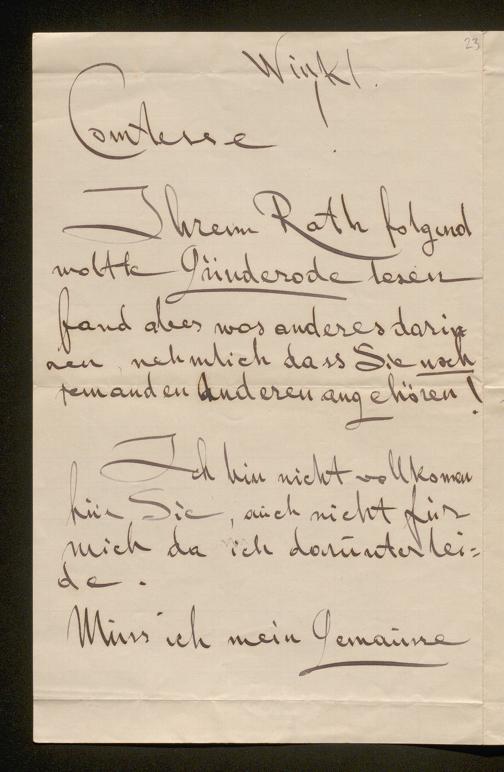 23
Winkl.
Comtesse!
Ihrem Rath folgend
wollte Günderode lesen
fand aber was anderes darin
nen, nehmlich dass Sie noch
jemanden Anderen angehören!
Ich bin nicht vollkomen
für Sie, auch nicht für
mich da ich darunter lei=
de.
Muss ich mein